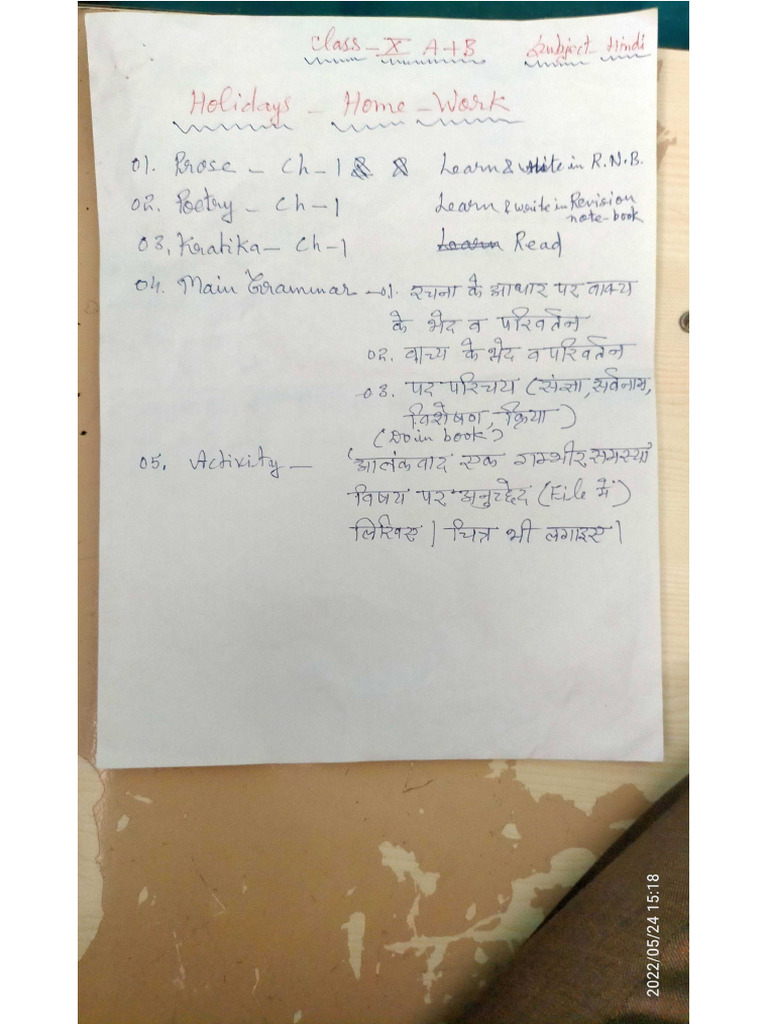 Class - X A+B Subject - Hindi
Holidays - Home - Work
01. Prose - Ch-1 & Learn & write in R.N.B.
02. Poetry - Ch-1 Learn & write in Revision note-book
03. Kratika - Ch-1 Read
04. Main Grammar - 01. रचना के आधार पर वाक्य
के भेद व परिवर्तन
02. वाच्य के भेद व परिवर्तन
03. पद परिचय (संज्ञा, सर्वनाम,
विशेषण, क्रिया)
(Do in book)
05. Activity - 'आतंकवाद एक गम्भीर समस्या'
विषय पर अनुच्छेद (File में)
लिखिए। चित्र भी लगाइए।
2022/05/24 15:18